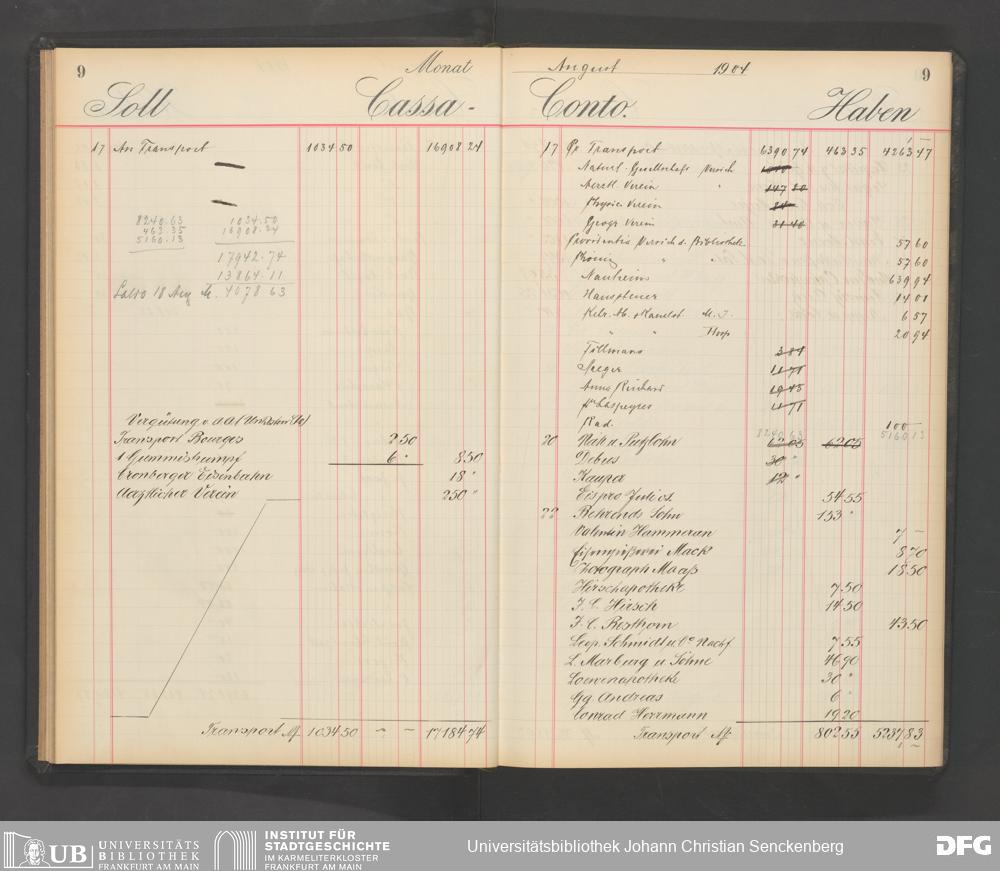 9 Monat
Soll Cassa-
17 An Transport 1034 50 16908 24
8240.63 1034.50
463.35 16908.24
5160.13
17942.74
13864.11
Saldo 18 Aug M. 4078 63
Vergütung v. d.
Transport Bourges 2 50
1 Gummistrumpf 6 " 8 50
Cronberger Eisenbahn 18 "
Aerztlicher Verein 250 "
Transport M 1034 50 – – 17184 74
August 1904 9
Conto. Haben
17 Pr Transport 6390 74 463 35 4263 47
Naturf. Gesellschaft Versich
Aerztl. Verein " 147 20
Physic Verein 24
Geogr Verein 31 40
Providentia Versich d. Bibliothek 57 60
Phönix " " 57 60
Nauheim 639 94
Haussteuer 14 01
6 57
" " Hosp 20 94
Tillmans 3 84
Seeger 11 71
Anna Reichard 19 45
Fr. Laspeyres 11 71
Rad. 100
8240.63 5160.13
20 Näh u Putzlohn 62 05 62 05
Debus 30 "
Kayser 12 "
Eispro Juli 54 55
22 Behrends Sohn 153 "
Valentin Hammeran 7 –
Eisengießerei Mack 8 70
Photograph Maaß 18 50
Hirschapotheke 7 50
J. C. Hirsch 14 50
J. C. Bosthorn 43 50
Leop. Schmidt u Co Nachf 7 55
L. Marburg u Söhne 46 90
Loewenapotheke 30 "
Gg. Andreas 6 "
Conrad Herrmann 19 20
Transport M 802 55 5237 83
UB UNIVERSITÄTS
BIBLIOTHEK
FRANKFURT AM MAIN
INSTITUT FÜR
STADTGESCHICHTE
IM KARMELITERKLOSTER
FRANKFURT AM MAIN
Universitätsbibliothek Johann Christian Senckenberg
DFG